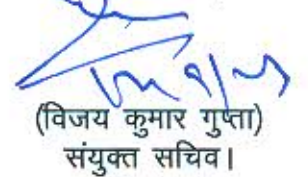 (विजय कुमार गुप्ता)
संयुक्त सचिव।